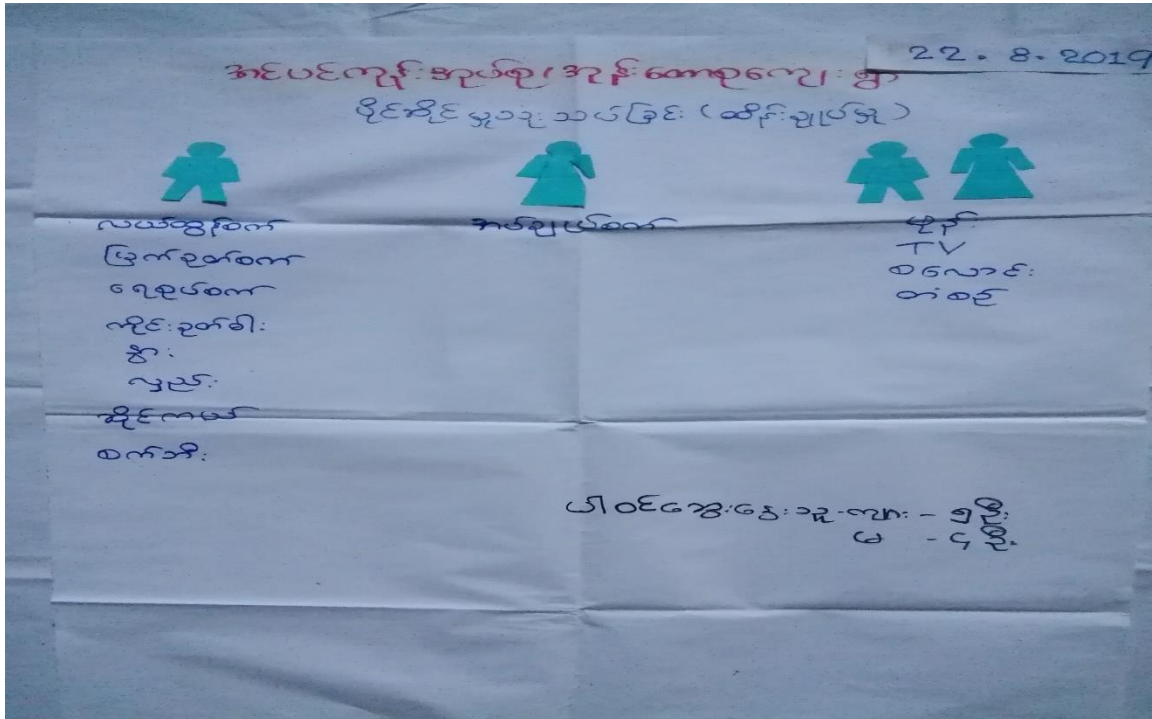 22. 8. 2019
အင်ပင်ကုန်းအုပ်စု၊ အုန်းတောစုကျေးရွာ
ပိုင်ဆိုင်မှုသုံးသပ်ခြင်း (ထိန်းချုပ်မှု)
လယ်ထွန်စက်
မြက်ခုတ်စက်
ရေစုပ်စက်
ကိုင်းခုတ်ဓါး
နွား
လှည်း
ဆိုင်ကယ်
စက်ဘီး
အပ်ချုပ်စက်
ဖုန်း
TV
စလောင်း
တံစဉ်
ပါဝင်ဆွေးနွေးသူ-ကျား - ၅ဦး
မ - ၄ဦး